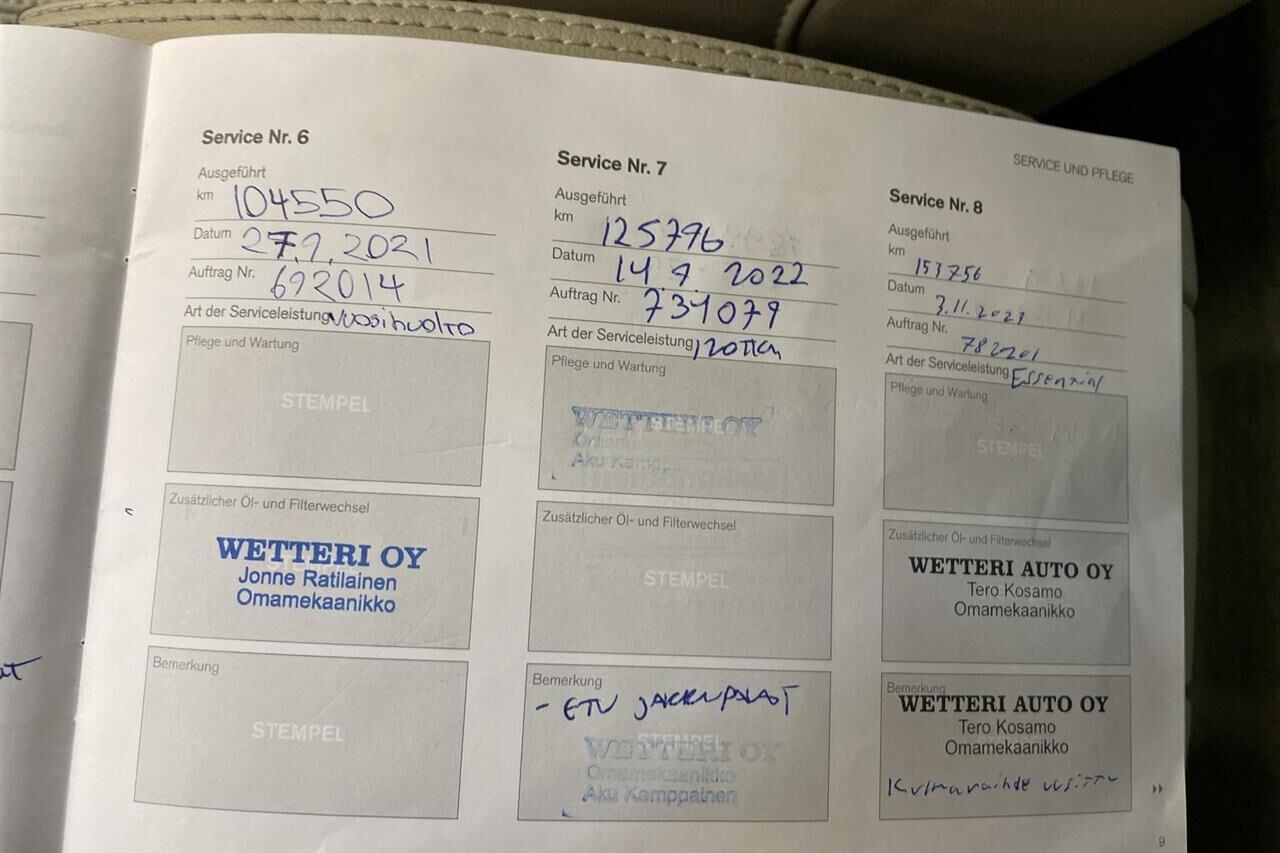 SERVICE UND PFLEGE
Service Nr. 6
Ausgeführt
km 104550
Datum 27.9.2021
Auftrag Nr. 692014
Art der Serviceleistung vuosihuolto
Pflege und Wartung
STEMPEL
Zusätzlicher Öl- und Filterwechsel
WETTERI OY
Jonne Ratilainen
Omamekaanikko
Bemerkung
STEMPEL
Service Nr. 7
Ausgeführt
km 125796
Datum 14.9.2022
Auftrag Nr. 734079
Art der Serviceleistung 120TKM
Pflege und Wartung
STEMPEL
WETTERI OY
Aku Kemppa
Zusätzlicher Öl- und Filterwechsel
STEMPEL
Bemerkung
- ETU JARRUPALAT
STEMPEL
WETTERI OY
Omamekaanikko
Aku Kemppainen
Service Nr. 8
Ausgeführt
km 153756
Datum 3.11.2023
Auftrag Nr. 782201
Art der Serviceleistung Essential
Pflege und Wartung
STEMPEL
Zusätzlicher Öl- und Filterwechsel
WETTERI AUTO OY
Tero Kosamo
Omamekaanikko
Bemerkung
WETTERI AUTO OY
Tero Kosamo
Omamekaanikko
9